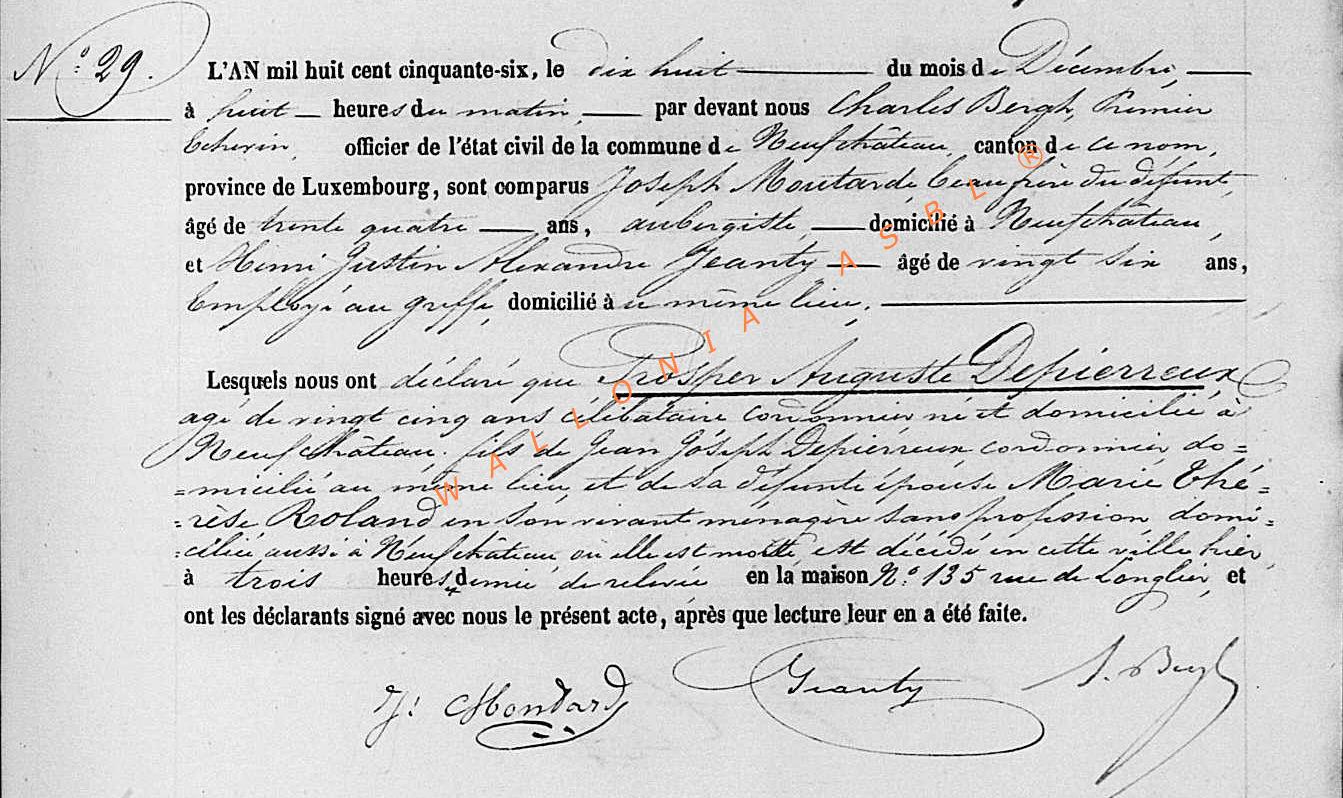 N.° 29.
L'AN mil huit cent cinquante-six, le dix huit du mois de Décembre,
à huit heures du matin, par devant nous Charles Bergh, Premier
Echevin, officier de l'état civil de la commune de Neufchâteau, canton de ce nom,
province de Luxembourg, sont comparus Joseph Moutarde beau frère du défunt,
âgé de trente quatre ans, aubergiste, domicilié à Neufchâteau,
et Henri Justin Alexandre Jeanty âgé de vingt six ans,
Employé au greffe, domicilié à ce même lieu.
Lesquels nous ont déclaré que Prosper Auguste Depierreux
agé de vingt cinq ans célibataire cordonnier né et domicilié à
Neufchâteau. fils de Jean Joseph Depierreux cordonnier do=
=micilié au même lieu, et de sa défunte épouse Marie Thé=
=rèse Roland en son vivant ménagère sans profession, domi=
=ciliée aussi à Neufchâteau où elle est morte est décédé en cette ville hier
à trois heures demie de relevée en la maison N.° 135 rue de Longlier, et
ont les déclarants signé avec nous le présent acte, après que lecture leur en a été faite.
Jeanty
WALLONIA ASBL ®